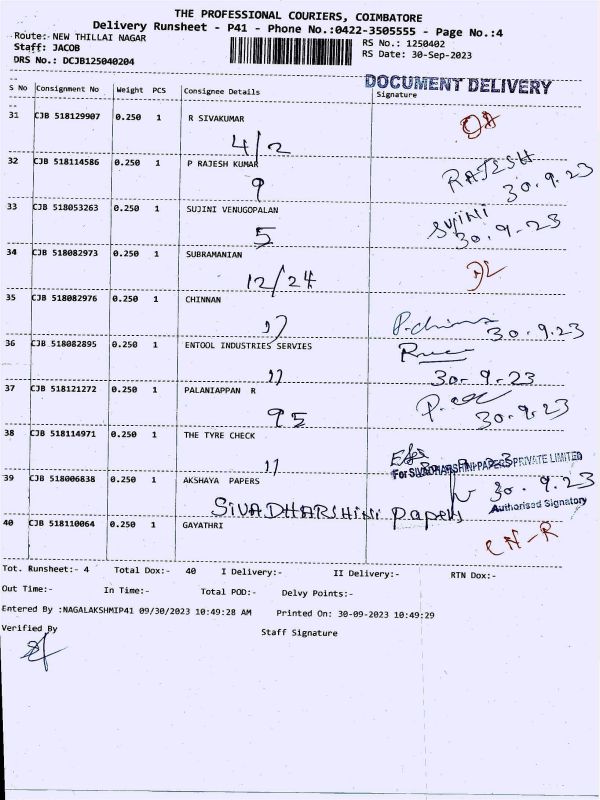 THE PROFESSIONAL COURIERS, COIMBATORE
Delivery Runsheet - P41 - Phone No.:0422-3505555 - Page No.:4
Route:- NEW THILLAI NAGAR
Staff: JACOB
DRS No.: DCJB125040204
RS No.: 1250402
RS Date: 30-Sep-2023
DOCUMENT DELIVERY
S No Consignment No Weight PCS Consignee Details Signature
31 CJB 518129907 0.250 1 R SIVAKUMAR
4/2
32 CJB 518114586 0.250 1 P RAJESH KUMAR
9 RAJESH 30.9.23
33 CJB 518053263 0.250 1 SUJINI VENUGOPALAN
5 SUJINI 30.9.23
34 CJB 518082973 0.250 1 SUBRAMANIAN
12/24
35 CJB 518082976 0.250 1 CHINNAN
30.9.23
36 CJB 518082895 0.250 1 ENTOOL INDUSTRIES SERVIES
30.9.23
37 CJB 518121272 0.250 1 PALANIAPPAN R
95 30.9.23
38 CJB 518114971 0.250 1 THE TYRE CHECK
For SIVADHARSHINI PAPERS PRIVATE LIMITED
39 CJB 518006838 0.250 1 AKSHAYA PAPERS
30.9.23
Authorised Signatory
SIVADHARSHINI Papers
40 CJB 518110064 0.250 1 GAYATHRI
CN-R
Tot. Runsheet:- 4 Total Dox:- 40 I Delivery:- II Delivery:- RTN Dox:-
Out Time:- In Time:- Total POD:- Delvy Points:-
Entered By :NAGALAKSHMIP41 09/30/2023 10:49:28 AM Printed On: 30-09-2023 10:49:29
Verified By Staff Signature